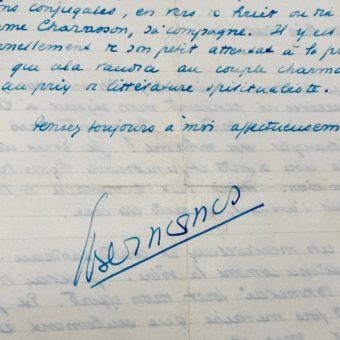 ns conjugales, en vers de huit ou di
me Charasson, sa compagne. Il y est
nellement de son petit attentat à la p
que cela vaudra au couple charma
au prix de littérature spiritualiste.
Pensez toujours à moi affectueusem
Bernanos